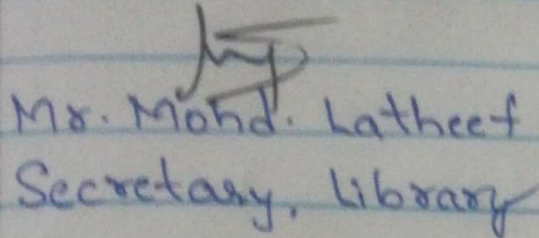 Mr. Mohd. Latheef
Secretary, Library